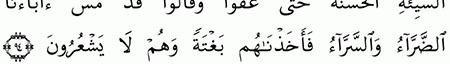 السيئة الحسنة حتى عفوا وقالوا قد مس ءاباءنا
ٱلضَّرَّآءُ وَٱلسَّرَّآءُ فَأَخَذْنَٰهُم بَغْتَةً وَهُمْ لَا يَشْعُرُونَ ٩٤